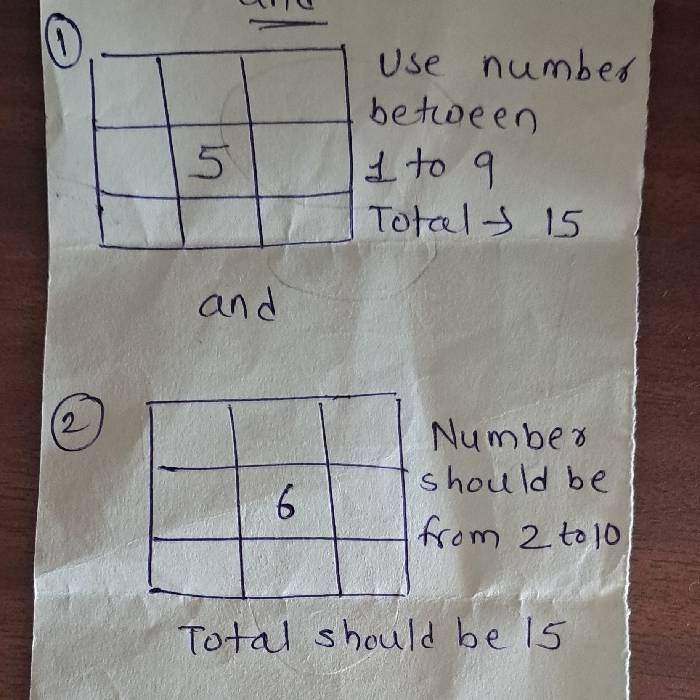 1
Use number
between
5
1 to 9
Total → 15
and
2
Number
should be
6
from 2 to 10
Total should be 15